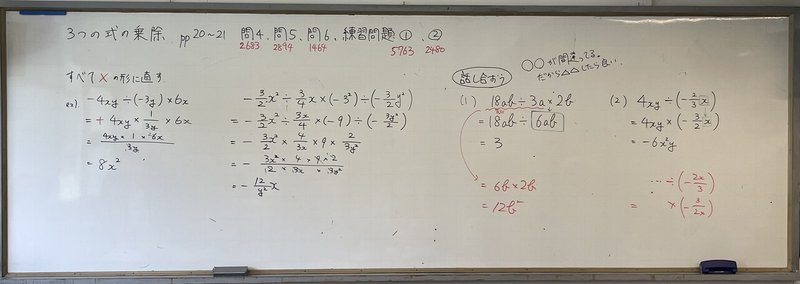 3つの式の乗除 pp20〜21 問4、問5、問6、練習問題①、②
2683 2894 1464 5763 2480
すべて×の形に直す
ex) -4xy÷(-3y)×6x
= + 4xy × 1/3y × 6x
= 4xy × 1 × 6x / 3y
= 8x²
-3/2x²÷3/4x×(-3²)÷(-3/2y²)
= -3/2x²÷3x/4×(-9)÷(-3y²/2)
= -3/2x² × 4/3x × 9 × 2/3y²
= - 3x² × 4 × 9 × 2 / 2 × 3x × 3y²
= -12/y² x
話し合おう
○○が間違ってる。
だから△△したら良い。
(1) 18ab÷3a×2b
= 18ab÷6ab
= 3
= 6b×2b
= 12b²
(2) 4xy÷(-2/3x)
= 4xy×(-3/2x)
= -6x²y
… ÷(-2x/3)
= ×(-3/2x)